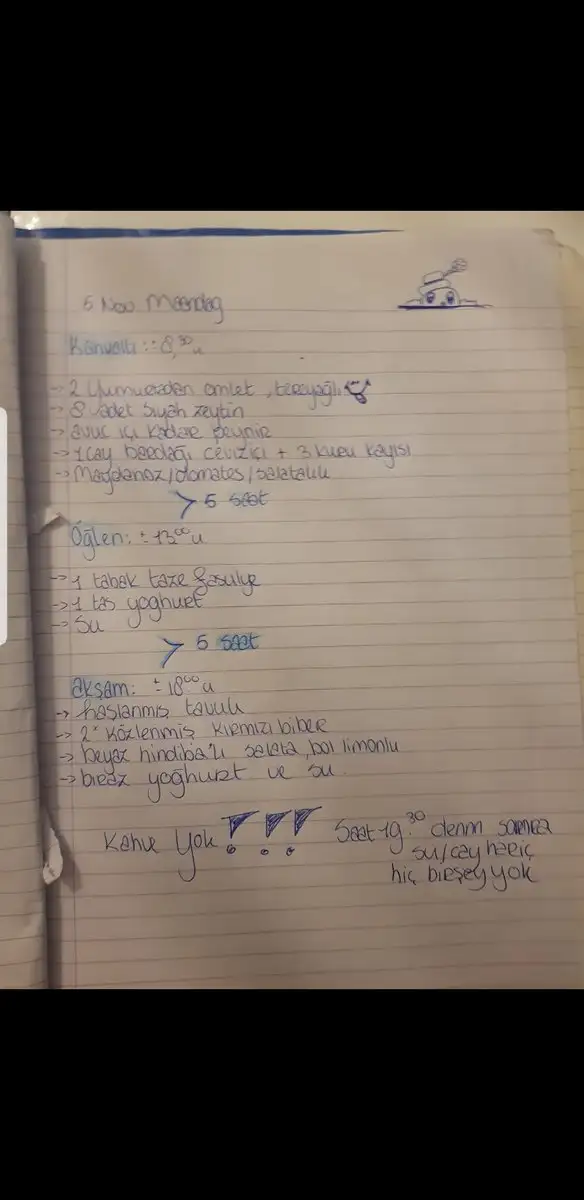 5 Nov Maandag
Kahvaltı: ± 8,30 u
-> 2 yumurtadan omlet, tereyağlı
-> 8 adet siyah zeytin
-> avuç içi kadar peynir
-> 1 çay bardağı ceviziçi + 3 kuru kayısı
-> Maydanoz/domates/salatalık
> 5 saat
Öğlen: ± 13:00 u
-> 1 tabak taze fasulye
-> 1 tas yoghurt
-> Su
> 5 saat
Akşam: ± 18:00 u
-> haşlanmış tavuk
-> 2 közlenmiş kırmızı biber
-> beyaz hindiba'lı salata, bol limonlu
-> biraz yoghurt ve su.
Kahve yok !!!
Saat 19:30 dan sonra
su/çay hariç
hiç birşey yok